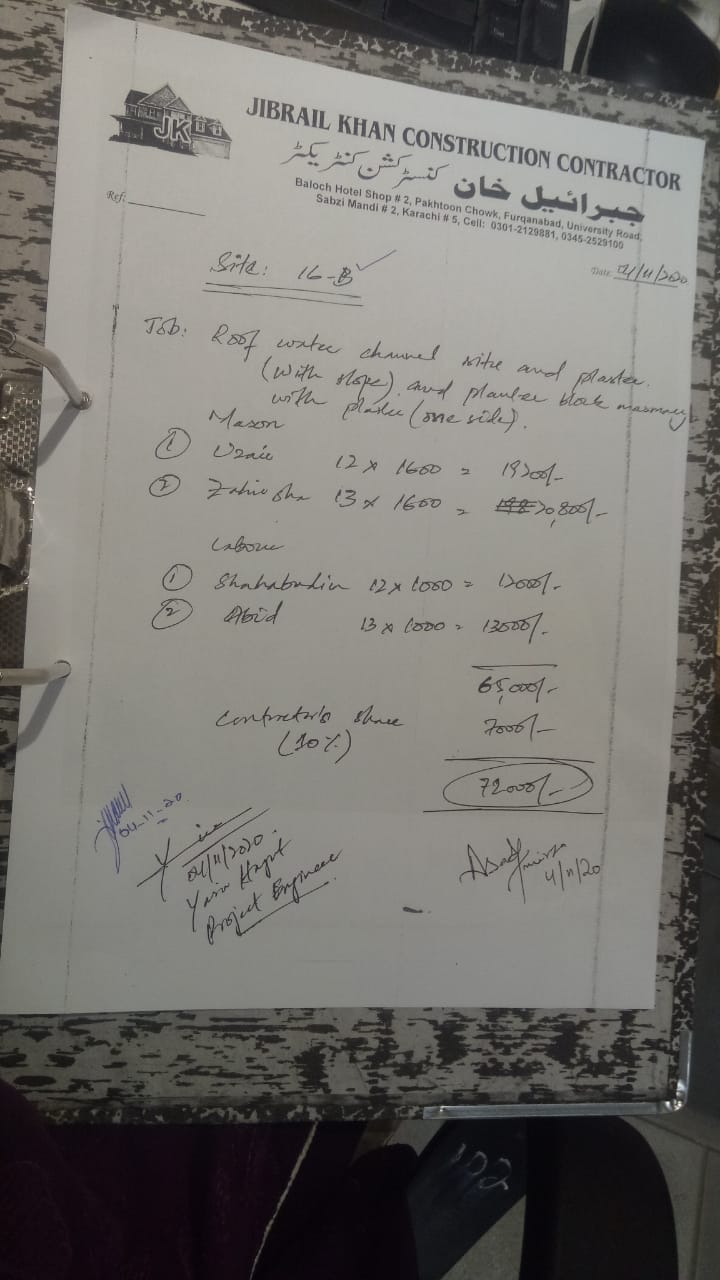 JK
JIBRAIL KHAN CONSTRUCTION CONTRACTOR
جبرائیل خان کنسٹرکشن کنٹریکٹر
Baloch Hotel Shop # 2, Pakhtoon Chowk, Furqanabad, University Road,
Sabzi Mandi # 2, Karachi # 5, Cell: 0301-2129881, 0345-2529100
Ref:
Date: 04/11/2020
Site: 16-B
Job: Roof water channel and plaster
(with slope) and planter block masonry
with plaster (one side).
Mason
① Uzair 12 x 1600 = 19200/-
② Zahir sha 13 x 1600 = 20,800/-
Labour
① Shahabudin 12 x 1000 = 12000/-
② Abid 13 x 1000 = 13000/-
65,000/-
Contractor's share 7000/-
(10%)
72000/-
04-11-20
04/11/2020
Yasir Hayat
Project Engineer
Asad
4/11/20
102